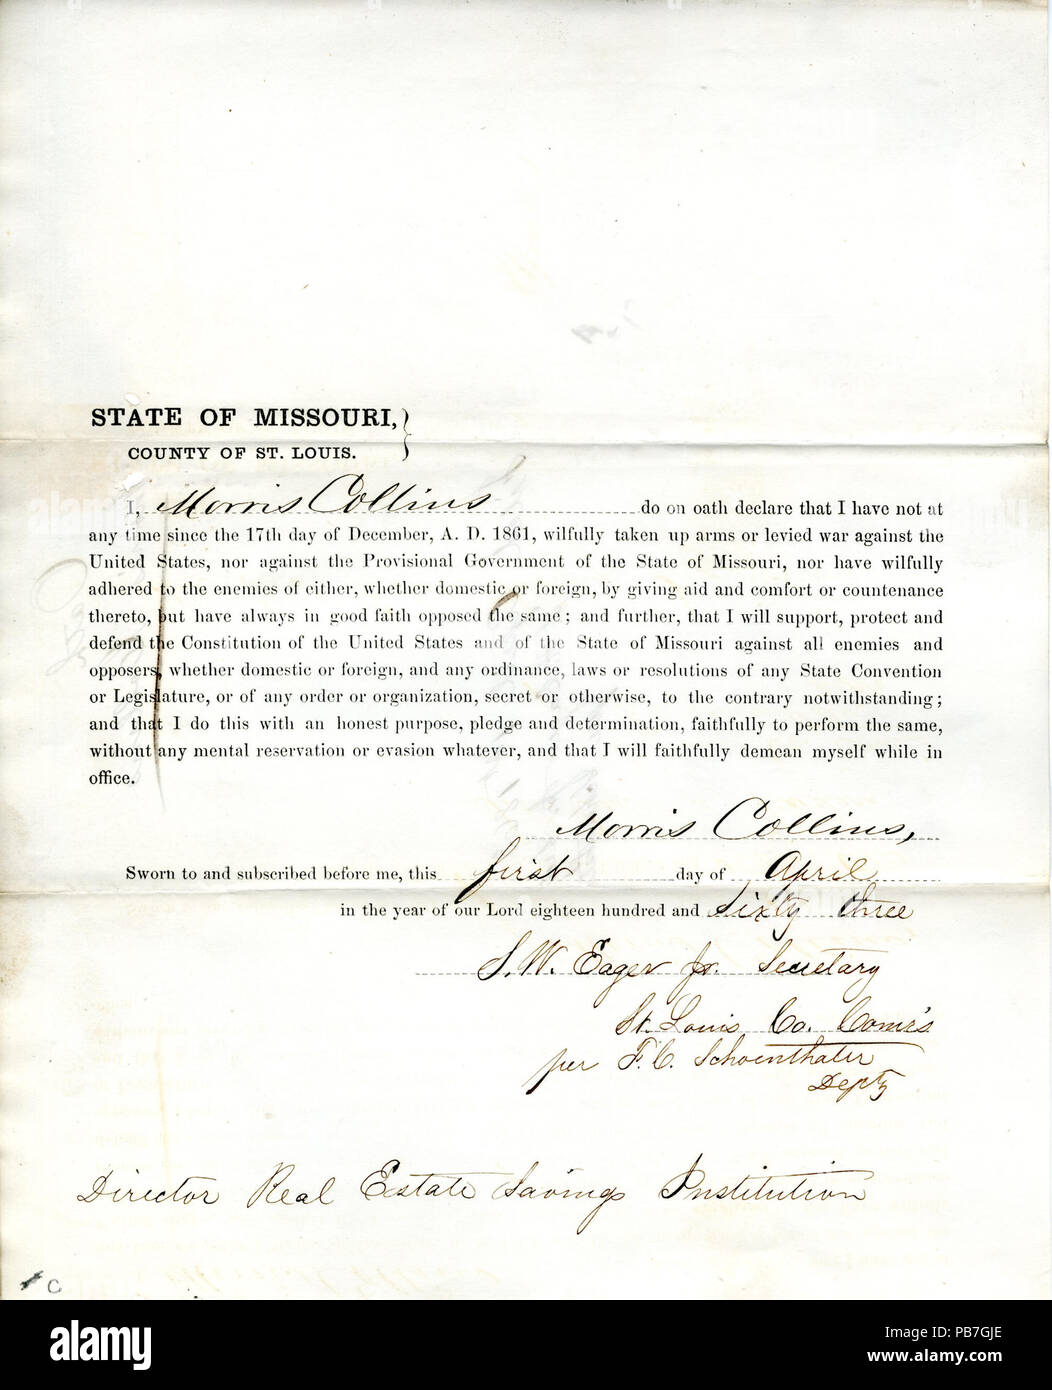 STATE OF MISSOURI,
COUNTY OF ST. LOUIS.
I, Morris Collins do on oath declare that I have not at
any time since the 17th day of December, A. D. 1861, wilfully taken up arms or levied war against the
United States, nor against the Provisional Government of the State of Missouri, nor have wilfully
adhered to the enemies of either, whether domestic or foreign, by giving aid and comfort or countenance
thereto, but have always in good faith opposed the same; and further, that I will support, protect and
defend the Constitution of the United States and of the State of Missouri against all enemies and
opposers, whether domestic or foreign, and any ordinance, laws or resolutions of any State Convention
or Legislature, or of any order or organization, secret or otherwise, to the contrary notwithstanding;
and that I do this with an honest purpose, pledge and determination, faithfully to perform the same,
without any mental reservation or evasion whatever, and that I will faithfully demean myself while in
office.
Morris Collins,
Sworn to and subscribed before me, this first day of April
in the year of our Lord eighteen hundred and sixty three
S. W. Eager Jr. Secretary
St. Louis Co. Comrs
per F. C. Schoenthaler
Depty
Director Real Estate Savings Institution
C
alamy
alamy
Image ID: PB7GJE
www.alamy.com